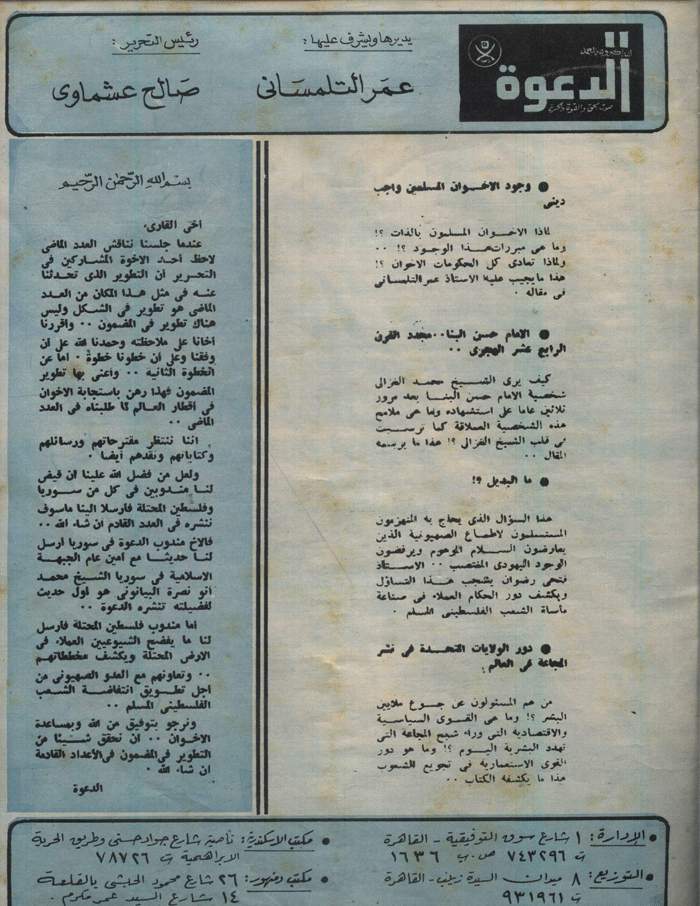 الدعوة
صوت الحق والقوة والحرية
يديرها ويشرف عليها :
عمر التلمسانى
رئيس التحرير :
صالح عشماوى
● وجود الاخوان المسلمين واجب
دينى
لماذا الاخوان المسلمون بالذات ؟!
وما هى مبررات هذا الوجود ؟! ٠٠
ولماذا تعادى كل الحكومات الاخوان ؟!
هذا ما يجيب عليه الاستاذ عمر التلمسانى
فى مقاله ٠
● الامام حسن البنا٠٠مجدد القرن
الرابع عشر الهجرى ٠٠
كيف يرى الشيخ محمد الغزالى
شخصية الامام حسن البنا بعد مرور
ثلاثين عاما على استشهاده وما هى ملامح
هذه الشخصية العملاقة كما ترسبت
فى قلب الشيخ الغزالى ؟! هذا ما يرسمه
المقال ٠٠
● ما البديل ؟!
هذا السؤال الذى يحاج به المنهزمون
المستسلمون لاطماع الصهيونية الذين
يعارضون السلام الموهوم ويرفضون
الوجود اليهودى المغتصب ٠٠ الاستاذ
فتحى رضوان يشجب هذا التساؤل
ويكشف دور الحكام العملاء فى صناعة
مأساة الشعب الفلسطينى المسلم ٠
● دور الولايات المتحدة فى نشر
المجاعة فى العالم
من هم المسئولون عن جوع ملايين
البشر ؟! وما هى القوى السياسية
والاقتصادية التى وراء شبح المجاعة التى
تهدد البشرية اليوم ؟! وما هو دور
القوى الاستعمارية فى تجويع الشعوب
هذا ما يكشفه الكتاب ٠٠
بسم الله الرحمن الرحيم
اخى القارىء
عندما جلسنا نناقش العدد الماضى
لاحظ أحد الاخوة المشاركين فى
التحرير أن التطوير الذى تحدثنا
عنه فى مثل هذا المكان من العدد
الماضى هو تطوير فى الشكل وليس
هناك تطوير فى المضمون ٠٠ واقررنا
أخانا على ملاحظته وحمدنا الله على أن
وفقنا وعلى أن خطونا خطوة ٠ اما عن
الخطوة الثانيه ٠٠ وأعنى بها تطوير
المضمون فهذا رهن باستجابة الاخوان
فى أقطار العالم لما طلبناه فى العدد
الماضى ٠٠
اننا ننتظر مقترحاتهم ورسائلهم
وكتاباتهم ونقدهم أيضا ٠
ولعل من فضل الله علينا ان قيض
لنا مندوبين فى كل من سوريا
وفلسطين المحتلة فارسلا الينا ما سوف
ننشره فى العدد القادم ان شاء الله ٠٠
فالاخ مندوب الدعوة فى سوريا ارسل
لنا حديثا مع أمين عام الجبهة
الاسلامية فى سوريا الشيخ محمد
أبو نصرة البيانونى هو أول حديث
لفضيلته تنشره الدعوة ٠٠
أما مندوب فلسطين المحتلة فارسل
لنا ما يفضح الشيوعيين العملاء فى
الارض المحتلة ويكشف مخططاتهم
٠٠ وتعاونهم مع العدو الصهيونى من
أجل تطويق انتفاضة الشعب
الفلسطينى المسلم ٠٠
ونرجو بتوفيق من الله وبمساعدة
الاخوان ٠٠ أن نحقق شيئا من
التطوير فى المضمون فى الأعداد القادمة
ان شاء الله ٠
الدعوة
● الإدارة: ١ شارع سوق التوفيقية - القاهرة
ت ٧٤٣٢٩٦ ص.ب ١٦٣٦
● التوزيع: ٨ ميدان السيدة زينب - القاهرة
ت ٩٣١٩٦١
● مكتب الاسكندرية: ناصية شارع جواد حسنى وطريق الحرية
الابراهيمية ت ٧٨٧٢٦
● مكتب دمنهور: ٢٦ شارع محمود الحبشى بالقلعة
١٤ شارع السيد عمر مكرم ٠